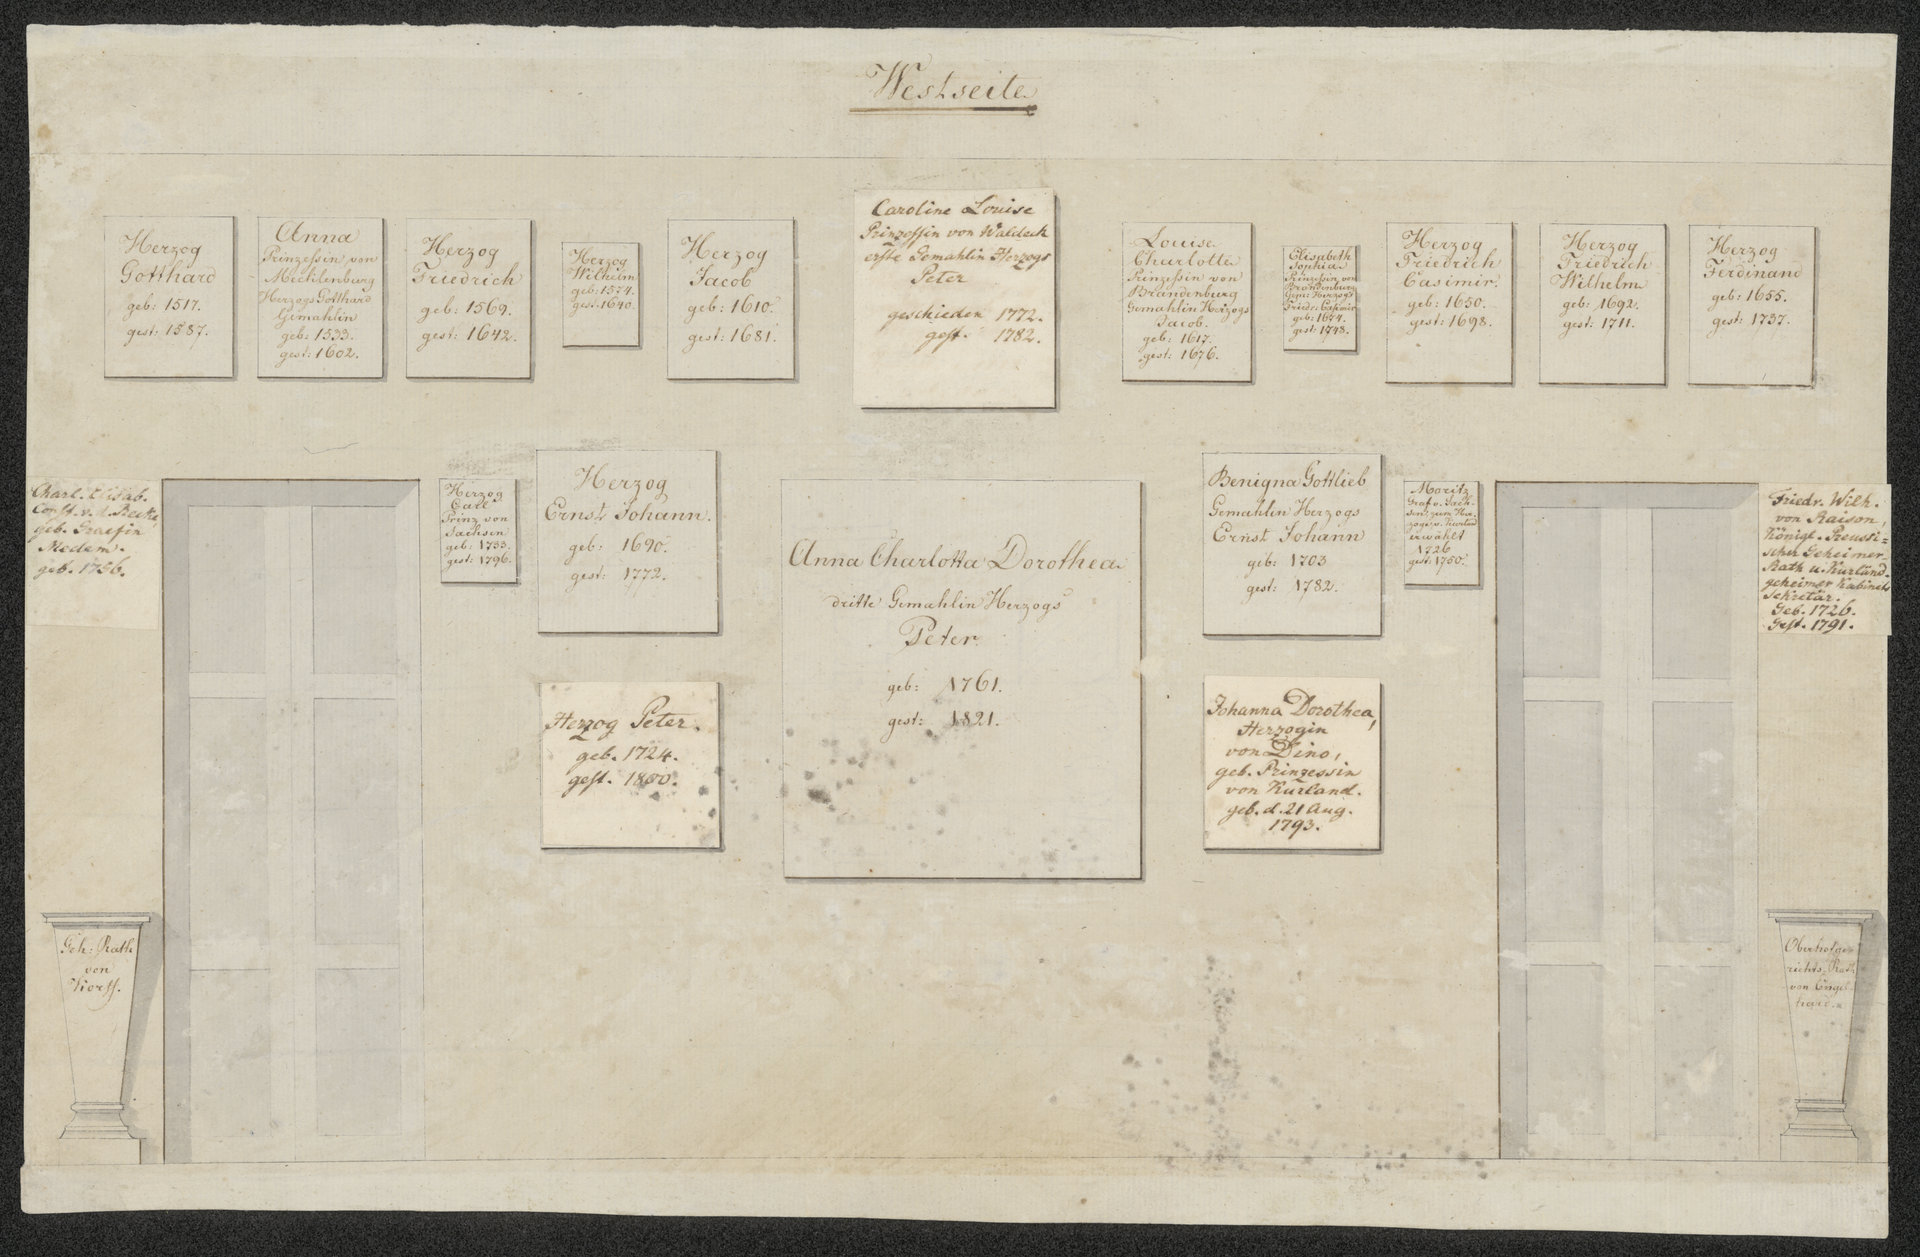 Westseite
Herzog
Gotthard
geb: 1517.
gest: 1587.
Anna
Prinzessin von
Mechlenburg
Herzogs Gotthard
Gemahlin
geb: 1533.
gest: 1602.
Herzog
Friedrich
geb: 1569.
gest: 1642.
Herzog
Wilhelm
geb: 1574.
gest: 1640.
Herzog
Jacob
geb: 1610.
gest: 1681.
Caroline Louise
Prinzessin von Waldeck
erste Gemahlin Herzogs
Peter
geschieden 1772.
gest. 1782.
Louise
Charlotte
Prinzessin von
Brandenburg
Gemahlin Herzogs
Jacob.
geb: 1617.
gest: 1676.
Elisabeth
Sophia
Prinzessin von
Brandenburg
Gem: Herzog's
Friedr: Casimir
geb: 1674.
gest: 1748.
Herzog
Friedrich
Casimir.
geb: 1650.
gest: 1698.
Herzog
Friedrich
Wilhelm
geb: 1692.
gest: 1711.
Herzog
Ferdinand
geb: 1655.
gest: 1737.
Charl. Elisab.
Const. v. d. Recke
geb. Graefin
Medem.
geb. 1756.
Herzog
Carl
Prinz von
Sachsen
geb: 1733.
gest: 1796.
Herzog
Ernst Johann.
geb: 1690.
gest: 1772.
Anna Charlotta Dorothea
dritte Gemahlin Herzogs
Peter
geb: 1761.
gest: 1821.
Benigna Gottlieb
Gemahlin Herzogs
Ernst Johann
geb: 1703
gest: 1782.
Moritz
Graf v. Sach-
sen, zum Her-
zoge v. Kurland
erwählt
1726
gest: 1750.
Friedr. Wilh.
von Raison,
Königl. Preussi=
scher Geheimer
Rath u. Kurländ.
geheimer Kabinets
Sekretär.
Geb. 1726.
Gest. 1791.
Herzog Peter.
geb. 1724.
gest. 1800.
Johanna Dorothea,
Herzogin
von Dino,
geb. Prinzessin
von Kurland.
geb. d. 21 Aug.
1793.
Geh: Rath
von
Korff.
Oberhofge-
richts-Rath
von Engel-
hard.